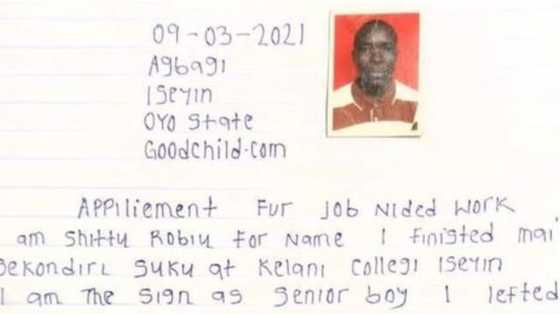 09-03-2021
Agbagi
Iseyin
Oyo State
Goodchild.com
Appiliement Fur Job Nided Work
am Shittu Robiu For Name I finisted mai
Sekondiri Suku at Kelani Collegi Iseyin
I am The Sign as Senior boy I lefted